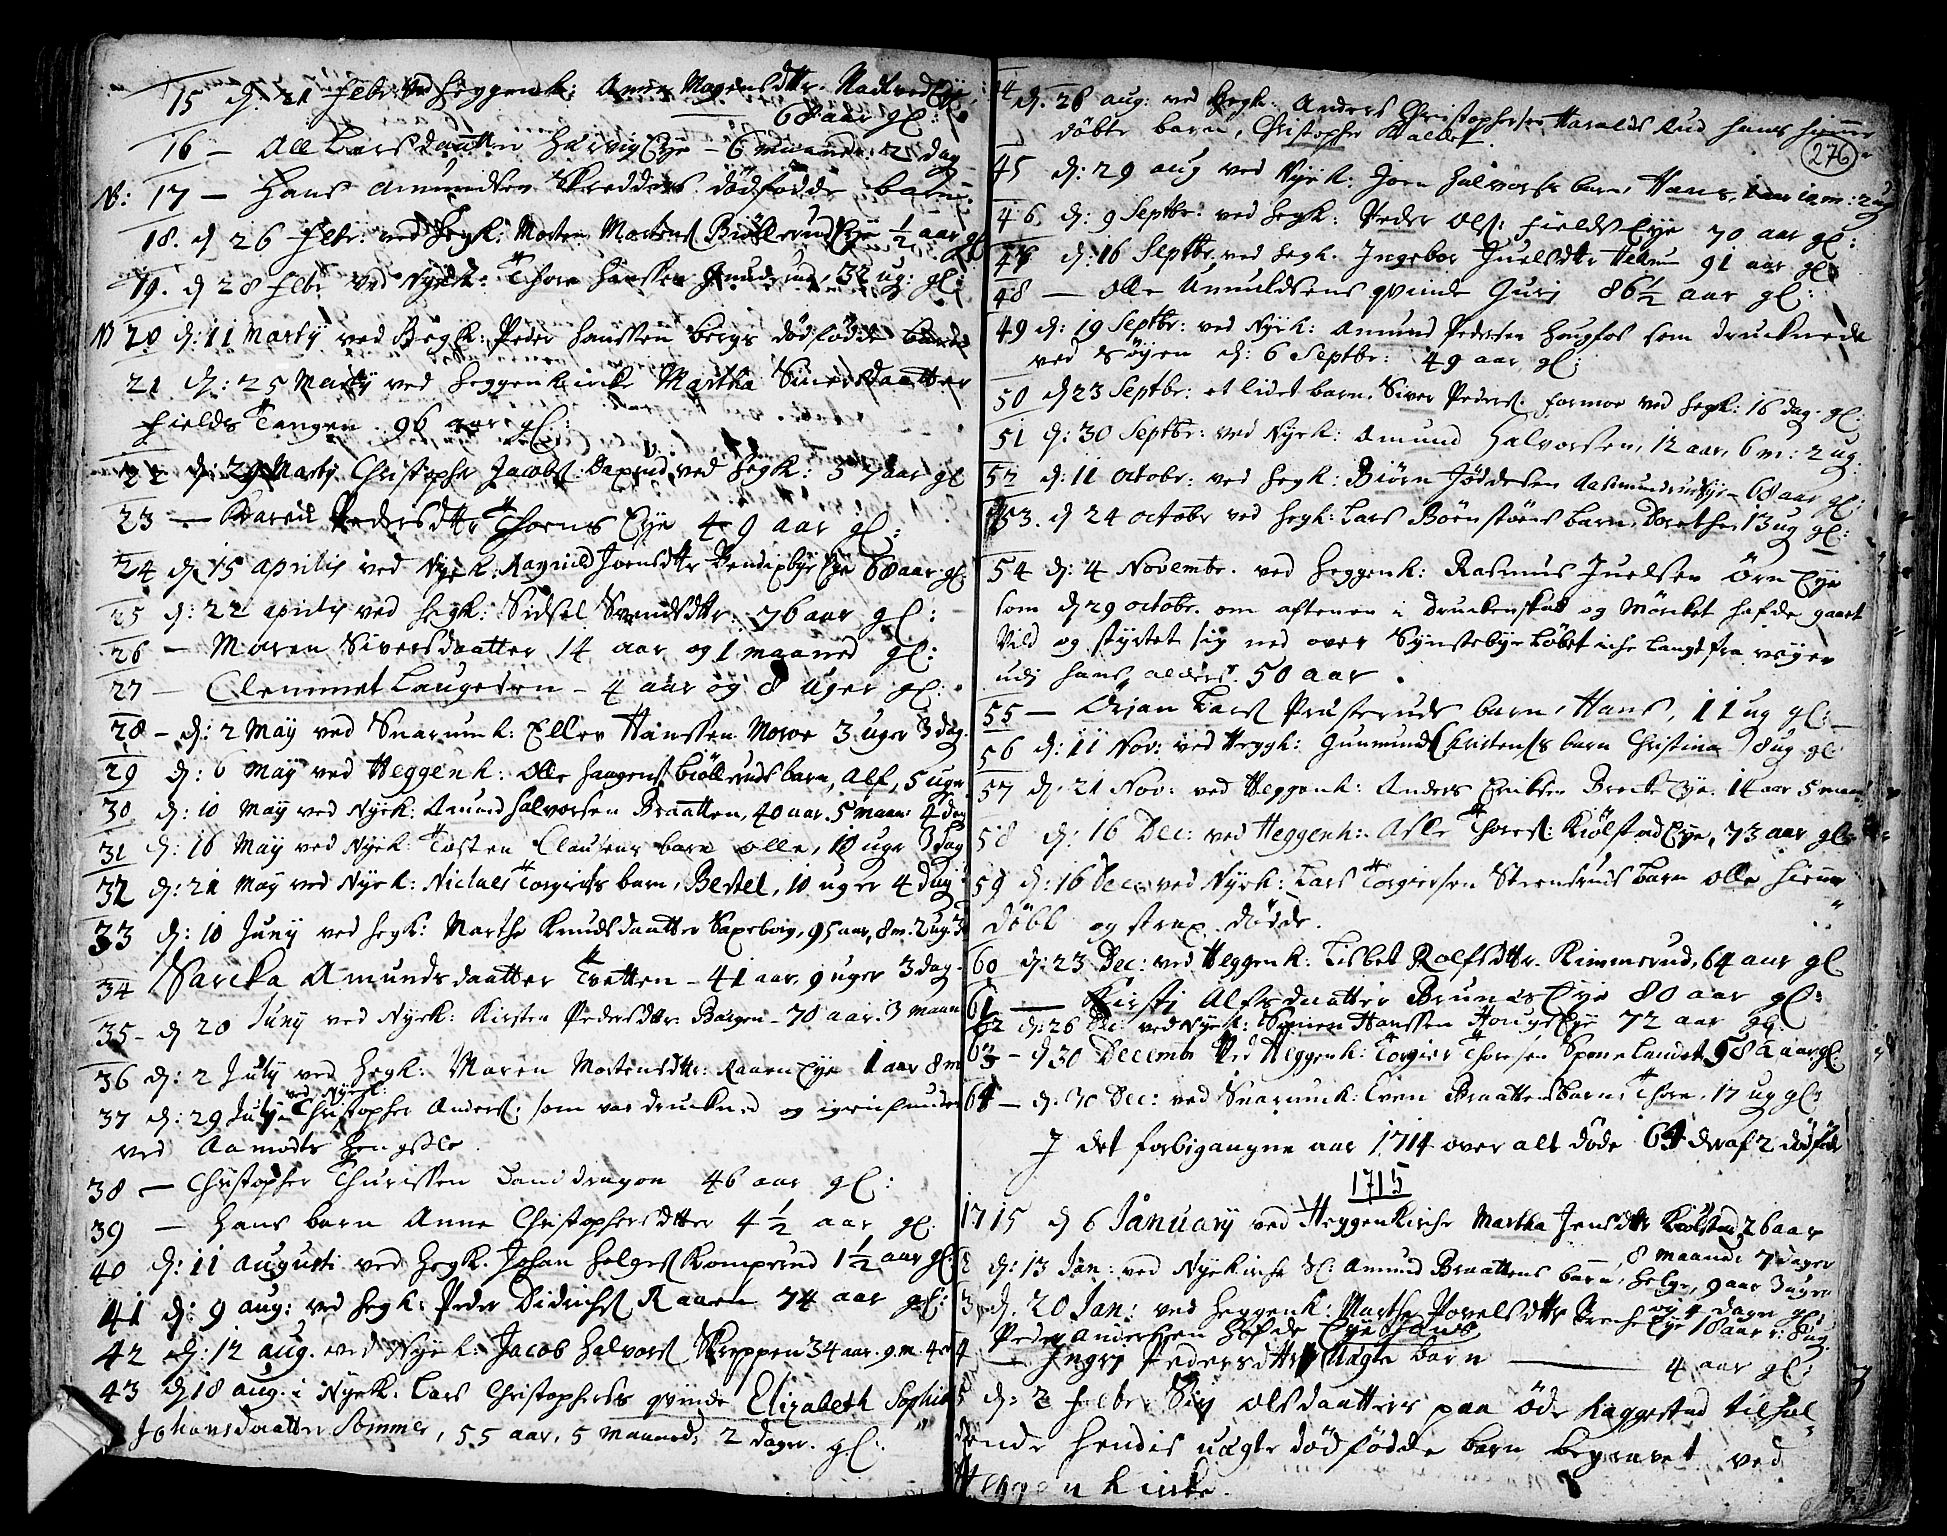 15 d: 21 Febr: ved Heggenk: Anne Mogensdttr.
68 aar gl:
16 — Alle Larsdaatter Harvig Eye — 6 maaneder: 2 dag
N: 17 — Hans Amundsen Skredders dødfødde barn.
18. d 26 Febr: ved Hegk: Morten Mortens Biöllerud Eye ½ aar gl
19. d 28 Febr ved Nyek: Thore Hanssen Gundrud 32 ug: gl:
NB 20 d: 11 Marty ved Hegk: Peder Hanssen bergs dödfödde barn
21 d: 25 Marty ved Heggenkircke Martha Siversdaatter
Fields Tangen. 96 aar gl:
22 d: 29 Marty Christopher Jacobs. Daxrud ved Hegk: 57 aar gl
23 — Karen Pedersdttr Thorns Eye 49 aar gl:
24 d 15 Aprilis ved Nyek: Ragnild Joensdttr Bendixbye Eye 68 aar gl:
25 d: 22 Aprilis ved Hegk: Sidsel Svendsdttr: 76 aar gl:
26 — Maren Siversdaatter 14 aar og 1 maaned gl:
27 — Clemmet Laugesen — 4 aar og 8 uger gl:
28 — d: 2 May ved Snarumk: Ellev Hanssen Moroe 3 uger 3 dag.
29 d: 6 May ved Heggenk: Olle Haagens Biöllerud barn, Alf, 5 uger
30 d: 10 May ved Nyek: Amund Halvorsen Braatten, 40 aar. 5 maan: 4 dag
31 d: 16 May ved Nyek: Tosten Clausens barn Olle, 10 uger 3 dag
32 d: 21 May ved Nyek: Niclaes Torgiers barn, Bertel, 10 uger 4 dag
33 d: 10 Juny ved Hegk: Marthe Knudsdaatter Saxebvig, 95 aar, 8 m. 2 ug. 3
34 Sareka Amundsdaatter Tvetten — 41 aar, 9 uger 3 dag.
35 — d 20 Juny ved Nyek: Kirsten Pedersdttr Bergen — 70 aar. 3 maan
36 d: 2 July ved Hegk: Maren Mortensdttr: Raaen Eye 1 aar 8 m
ved Nyek:
37 d: 29 July Christopher Anders: som var drucknet og igienfunden
ved Aamodts Hengsle
38 — Christopher Thurissen Landdragon 46 aar gl:
39 — Hans barn Anne Christophersdtter 4 ½ aar gl:
40 d: 11 Augusti ved Hegk. Johan Helges Komperud 1 ½ aar gl:
41 d: 9 aug: ved Hegk: Peder Didrichs Raaen 74 aar gl:
42 d: 12 aug. ved Nyek: Jacob Halvors Skreppen 34 aar. 9 m. 4
43 d 18 aug. i Nyek: Lars Christophers qvinde Elizabeth Sophia
Johansdaatter Sommer, 55 aar, 5 maaned: 2 dager. gl:
276
44 d. 26 aug: ved Hegk: Anders Christophersen Haralds Rud hans hiemme
döbte barn, Christopher kaldet.
45 d: 29 aug ved Nyek: Joen Halvors barn, Hans, 1 m: 2 ug
46. d: 9 Septbr: ved Hegk: Peder Ols: Fields Eye 70 aar gl:
47 d: 16 Septbr. ved Hegk. Ingebor Juelsdttr 91 aar gl:
48 — Olle Amuldsens qvinde Guri 86 ½ aar gl:
49 d: 19 Septbr: ved Nyek: Amund Pedersen Hougfos som drucknede
ved Söyen d: 6 Septbr: 49 aar gl:
50 d 23 Septbr: et lidet barn. Siver Peders. Formoe ved Hegk: 16 dag. gl
51 d: 30 Septbr: ved Nyek: Amund Halvorsen, 12 aar, 6 m: 2 ug.
52 d: 11 Octobr: ved Hegk: Biörn Jöddesen Aasmundrud Eye 68 aar gl:
53. d 24 octobr ved Hegk: Lars Börnstöens barn, Dorethe, 13 ug gl:
54 d: 4 Novembr. ved Heggenk: Rasmus Juelsen Örn Eye
som d 29 octobr. om aftenen i druckenskab og Mörcket hafde gaaet
Vild og styrtet sig ned over Synstebye Löbet iche langt fra veyen
udj hans alders. 50 aar.
55 — Örjan Lars Prusteruds barn, Hans, 11 ug gl:
56 d: 11 Nov: ved Heggk: Gunmund Christens barn Christina 8 ug gl
57 d. 21 Nov: ved Heggenk: Anders Erichsen Brecke Eye. 14 aar 5 maan
58 d: 16 Dec: ved Heggenk: Asle Thores: Kiölstad Eye, 73 aar gl:
59 d: 16 Dec: ved Nyek: Lars Torgiersen Steensruds barn Olle hiemme
döbt og strax döde.
60 d: 23 Dec: ved Heggenk: Lisbet Rolfsdttr. Rimmerud, 64 aar gl
61 — Kirsti Alfsdaatter Brunæs Eye 80 aar gl:
62 d: 26 Dec ved Nyek: Symen Hanssen Houge Eye 72 aar gl:
63 — d 30 Decembr Ved Heggenk: Torgier Thoresen Sponelandet 58 aar gl:
64 — d. 30 Dec: ved Snarumk: Even Braattens barn, Thore, 17 ug gl:
J det forbigangne aar 1714 over alt döde 64 deraf 2 dödföd
1715
1715 d 6 January ved Heggenkirche Martha Jensdttr Kiölstad 26 aar
8 maaned: 7 dager
2 d: 13 Jan: ved Nyekirche Amund Braattens barn, Helge, 9 aar 3 uger
og 4 dage gl:
3 d. 20 Jan: ved Heggenk: Marthe Povelsdttr Breche Eye 18 aar: 8 ug.
Peder Anderssen
4 — Ingri Pedersdttr Uægte barn — 4 aar gl:
5 d: 2 Febr. Siri Olsdaatters paa Öde Haggestad tilhol-
dende hendis uægte dödfödde barn begravet ved
Heggen kirke.